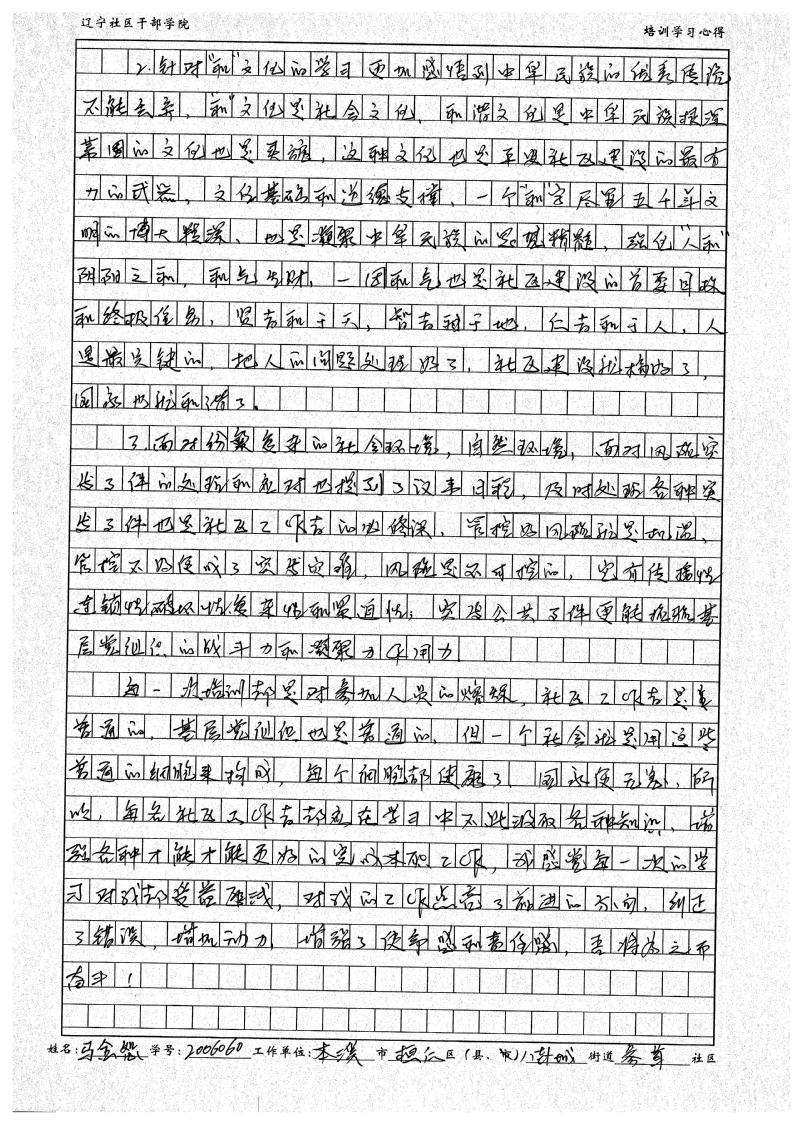 辽宁社区干部学院
培训学习心得
2.针对“和”文化的学习更加感悟到中华民族的优秀传统
不能丢弃，“和”文化是社会文化，和谐文化是中华民族根深
蒂固的文化也是美德，这种文化也是平安社区建设的最有
力的武器，文化基础和道德支撑，一个“和”字尽畐五千年文
明的博大精深、也是凝聚中华民族的思想精髓，强化“人和”
阴阳之和，和气生财，一团和气也是社区建设的首要目标
和终极任务，贤者和于天，智者和于地，仁者和于人，人
是最关键的，把人的问题处理好了，社区建设就搞好了，
国家也就和谐了。
3.面对纷繁复杂的社会环境，自然环境，面对风险突
发事件的处理和应对也提到了议事日程，及时处理各种突
发事件也是社区工作者的必修课，管控好风险就是机遇，
管控不好便成了突发灾难，风险是不可控的，它有传播性
连锁性破坏性复杂性和紧迫性；突发公共事件更能检验基
层党组织的战斗力和凝聚力作用力
每一次培训都是对参加人员的熔炼，社区工作者是最
普通的，基层党组织也是普通的，但一个社会就是用这些
普通的细胞来构成，每个细胞都健康了，国家便无恙，所
以，每名社区工作者都应在学习中不断汲取各种知识，增
强各种才能才能更好的完成本职工作，我感觉每一次的学
习对我都受益匪浅，对我的工作点亮了前进的方向，纠正
了错误，增加动力，增强了使命感和责任感，吾将为之而
奋斗！
姓名：马金 学号：2006060 工作单位：本溪 市 桓仁 区（县、市）八卦城 街道 参茸 社区